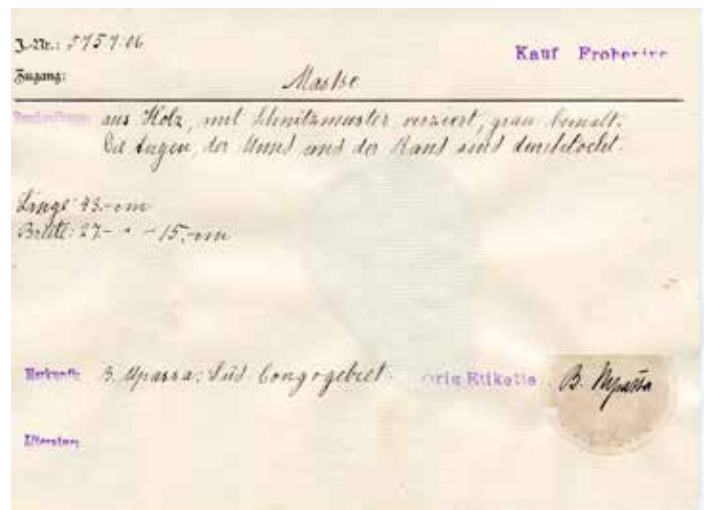 J.-Nr.: 5757.06
Kauf Frobenius
Zugang:
Maske
Beschreibung: aus Holz, mit Schnitzmuster verziert, grau bemalt.
Die Augen, der Mund und der Rand sind durchlocht.
Länge: 43.-cm
Breite: 27.- " - 15.-cm
Herkunft: B. Mpassa; Süd Congogebiet.
Orig Etikette
B. Mpassa
Literatur: